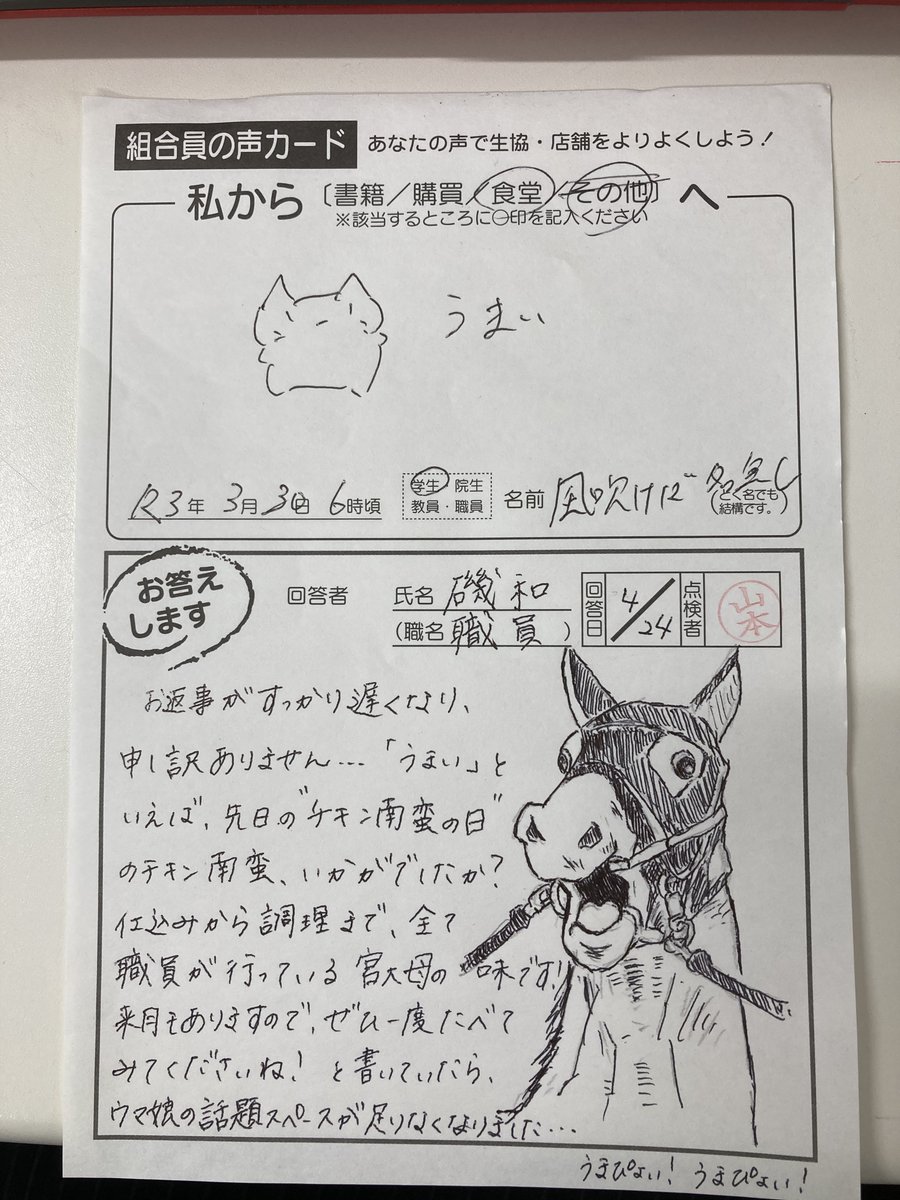 組合員の声カード あなたの声で生協・店舗をよりよくしよう！
私から〔書籍／購買／食堂／その他〕へ
※該当するところに○印を記入ください
うまい
R3年 3月 3日 6時頃 学生 院生 教員・職員 名前 風吹けば名無し （とく名でも結構です。）
お答えします
回答者 氏名 磯和 （職名 職員） 回答日 4/24 点検者 山本
お返事がすっかり遅くなり、
申し訳ありません…「うまい」と
いえば、先日の"チキン南蛮の日"
のチキン南蛮、いかがでしたか？
仕込みから調理まで、全て
職員が行っている宮大母の味です！
来月もありますので、ぜひ一度たべて
みてくださいね！と書いていたら、
ウマ娘の話題スペースが足りなくなりました…
うまぴょい！うまぴょい！